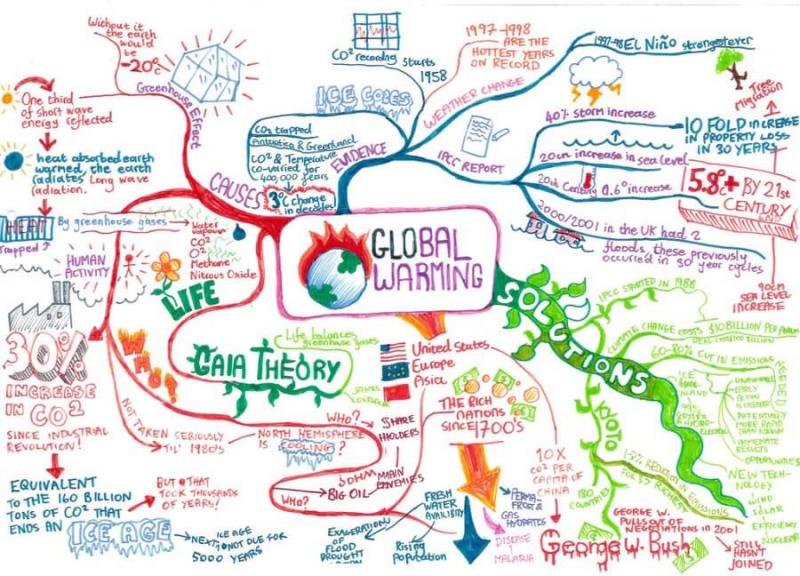 GLOBAL
WARMING
Without it
the earth
would
be
-20°c
Greenhouse Effect
One third
of short wave
energy reflected
heat absorbed earth
warmed, the earth
radiates Long wave
radiation.
HEAT
Trapped
By greenhouse gases
Water
vapour
CO²
O²
Methane
Nitrous Oxide
CAUSES
HUMAN
ACTIVITY
LIFE
30%
INCREASE
IN CO²
SINCE INDUSTRIAL
REVOLUTION!
EQUIVALENT
TO THE 160 BILLION
TONS OF CO² THAT
ENDS AN
ICE AGE
BUT THAT
TOOK THOUSANDS
OF YEARS!
NEXT ICE AGE
NOT DUE FOR
5000 YEARS
WHO?
NOT TAKEN SERIOUSLY
TIL' 1980's
NORTH HEMISPHERE
IS
COOLING?
GAIA THEORY
Life balances
greenhouse gases
WHO?
SHARE
HOLDERS
MAIN
WHO?
BIG OIL
CO² recording starts
1958
ICE CORES
CO² trapped
Antarctica & Greenland
CO² & Temperature
co-varied for
400,000 years
3°C change
in decades
EVIDENCE
WEATHER CHANGE
1997-1998
ARE THE
HOTTEST YEARS
ON RECORD
1997-98 EL Niño strongest ever
IPCC REPORT
40% storm increase
20cm increase in sea level
20th Century 0.6° increase
2000/2001 in the UK had 2
floods, these previously
occurred in 30 year cycles
Tree
Migration
10 FOLD INCREASE
IN PROPERTY LOSS
IN 30 YEARS
5.8°c+ BY 21st
CENTURY
90cm
SEA LEVEL
INCREASE
SOLUTIONS
IPCC STARTED IN 1988
CLIMATE CHANGE COSTS $10 BILLION PER ANNUM
60-80% CUT IN EMISSIONS
NEEDED
ICE
POTENTIALLY
MORE RAPID
THAN KNOWN
IMMEDIATE
RESULTS
OPPORTUNITIES
NEW TECH-
NOLOGY
WIND
SOLAR
EFFICIENCY
NUCLEAR
KYOTO
REDUCTION IN EMISSIONS
180
COUNTRIES
GEORGE W.
PULLS OUT OF
NEGOTIATIONS IN 2001
STILL
HASN'T
JOINED
George W. Bush
United States
Europe
Asia
THE RICH
NATIONS
SINCE 1700's
10X
CO² PER
CAPITA OF
CHINA
FRESH
WATER
AVAILIBITY
PERMA-
FROST &
GAS
HYDRATES
DISEASE
MALARIA
Rising
population
EXAGERATION
OF FLOOD
DROUGHT